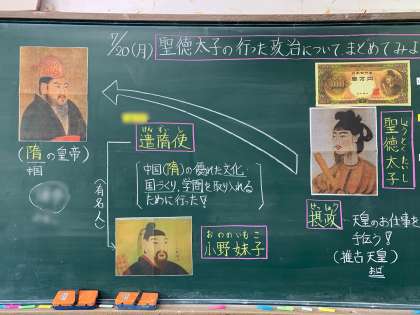 7/20(月) 聖徳太子の行った政治について まとめてみよ
壱万円
(隋の皇帝)
中国
けんずいし
遣隋使
(有名人)
中国(隋)の優れた文化、
国づくり、学問を取り入れる
ために行った!
おののいもこ
小野妹子
しょうとくたいし
聖徳太子
せっしょう
摂政
天皇のお仕事を
手伝う!
(推古天皇)
おば